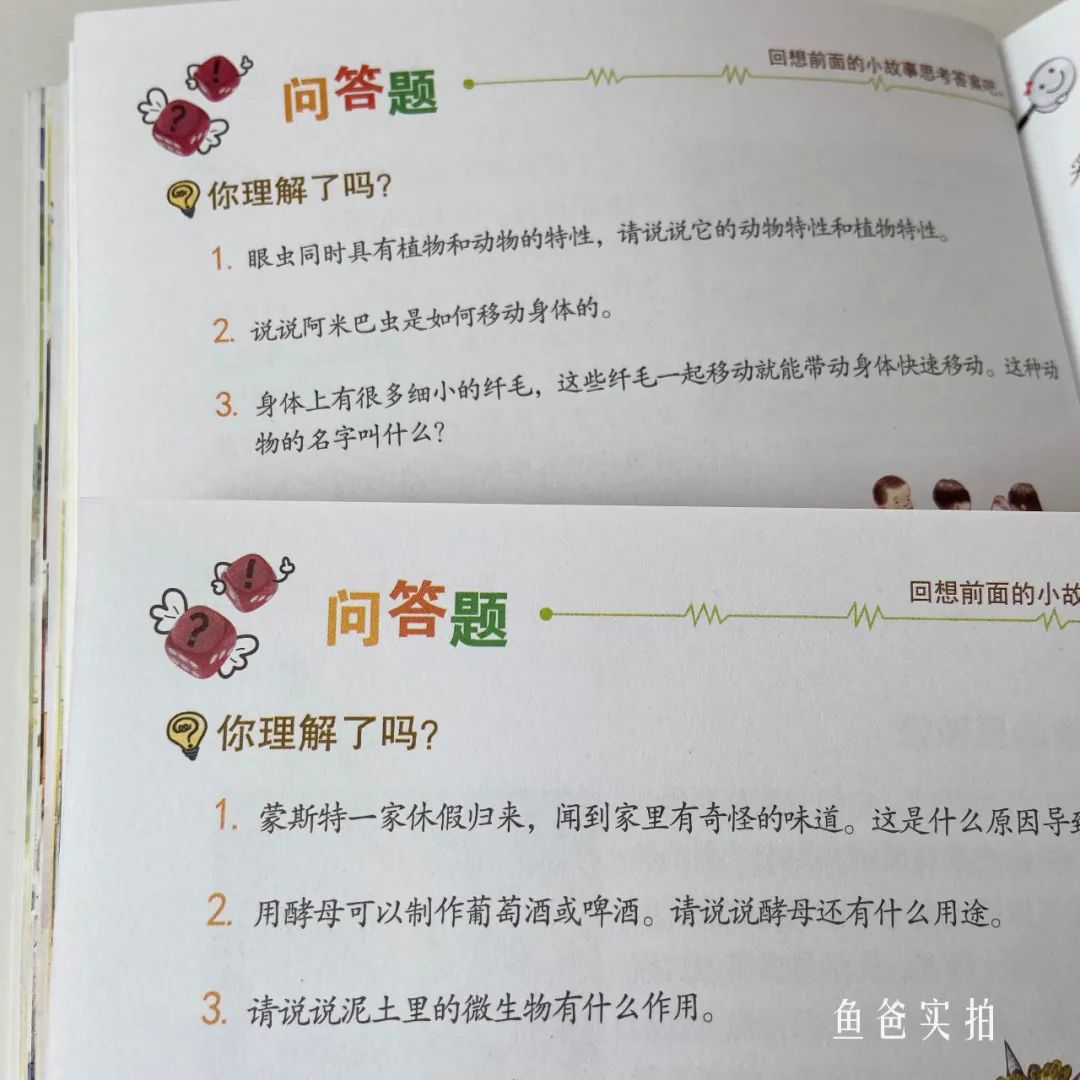 问答题
回想前面的小故事思考答案吧。
你理解了吗?
1. 眼虫同时具有植物和动物的特性，请说说它的动物特性和植物特性。
2. 说说阿米巴虫是如何移动身体的。
3. 身体上有很多细小的纤毛，这些纤毛一起移动就能带动身体快速移动。这种动
物的名字叫什么?
问答题
回想前面的小故
你理解了吗?
1. 蒙斯特一家休假归来，闻到家里有奇怪的味道。这是什么原因导致
2. 用酵母可以制作葡萄酒或啤酒。请说说酵母还有什么用途。
3. 请说说泥土里的微生物有什么作用。
鱼爸实拍